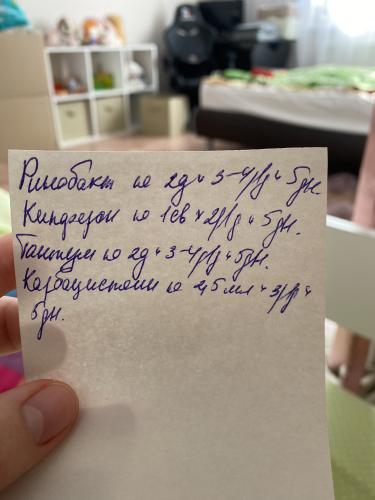 Ринобакт по 2д × 3-4р/д × 5дн.
Кипферон по 1св × 2р/д × 5дн.
Тантум по 2д × 3-4р/д × 5дн.
Карбоцистеин по 2,5 мл × 3р/д ×
5дн.